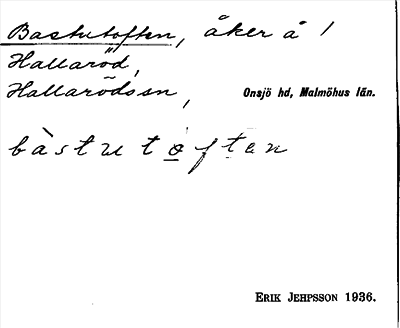 Bastutoften, åker å 1
Hallaröd,
Hallarödssn,
Onsjö hd, Malmöhus län.
bàstu to̲ften
ERIK JEHPSSON 1936.